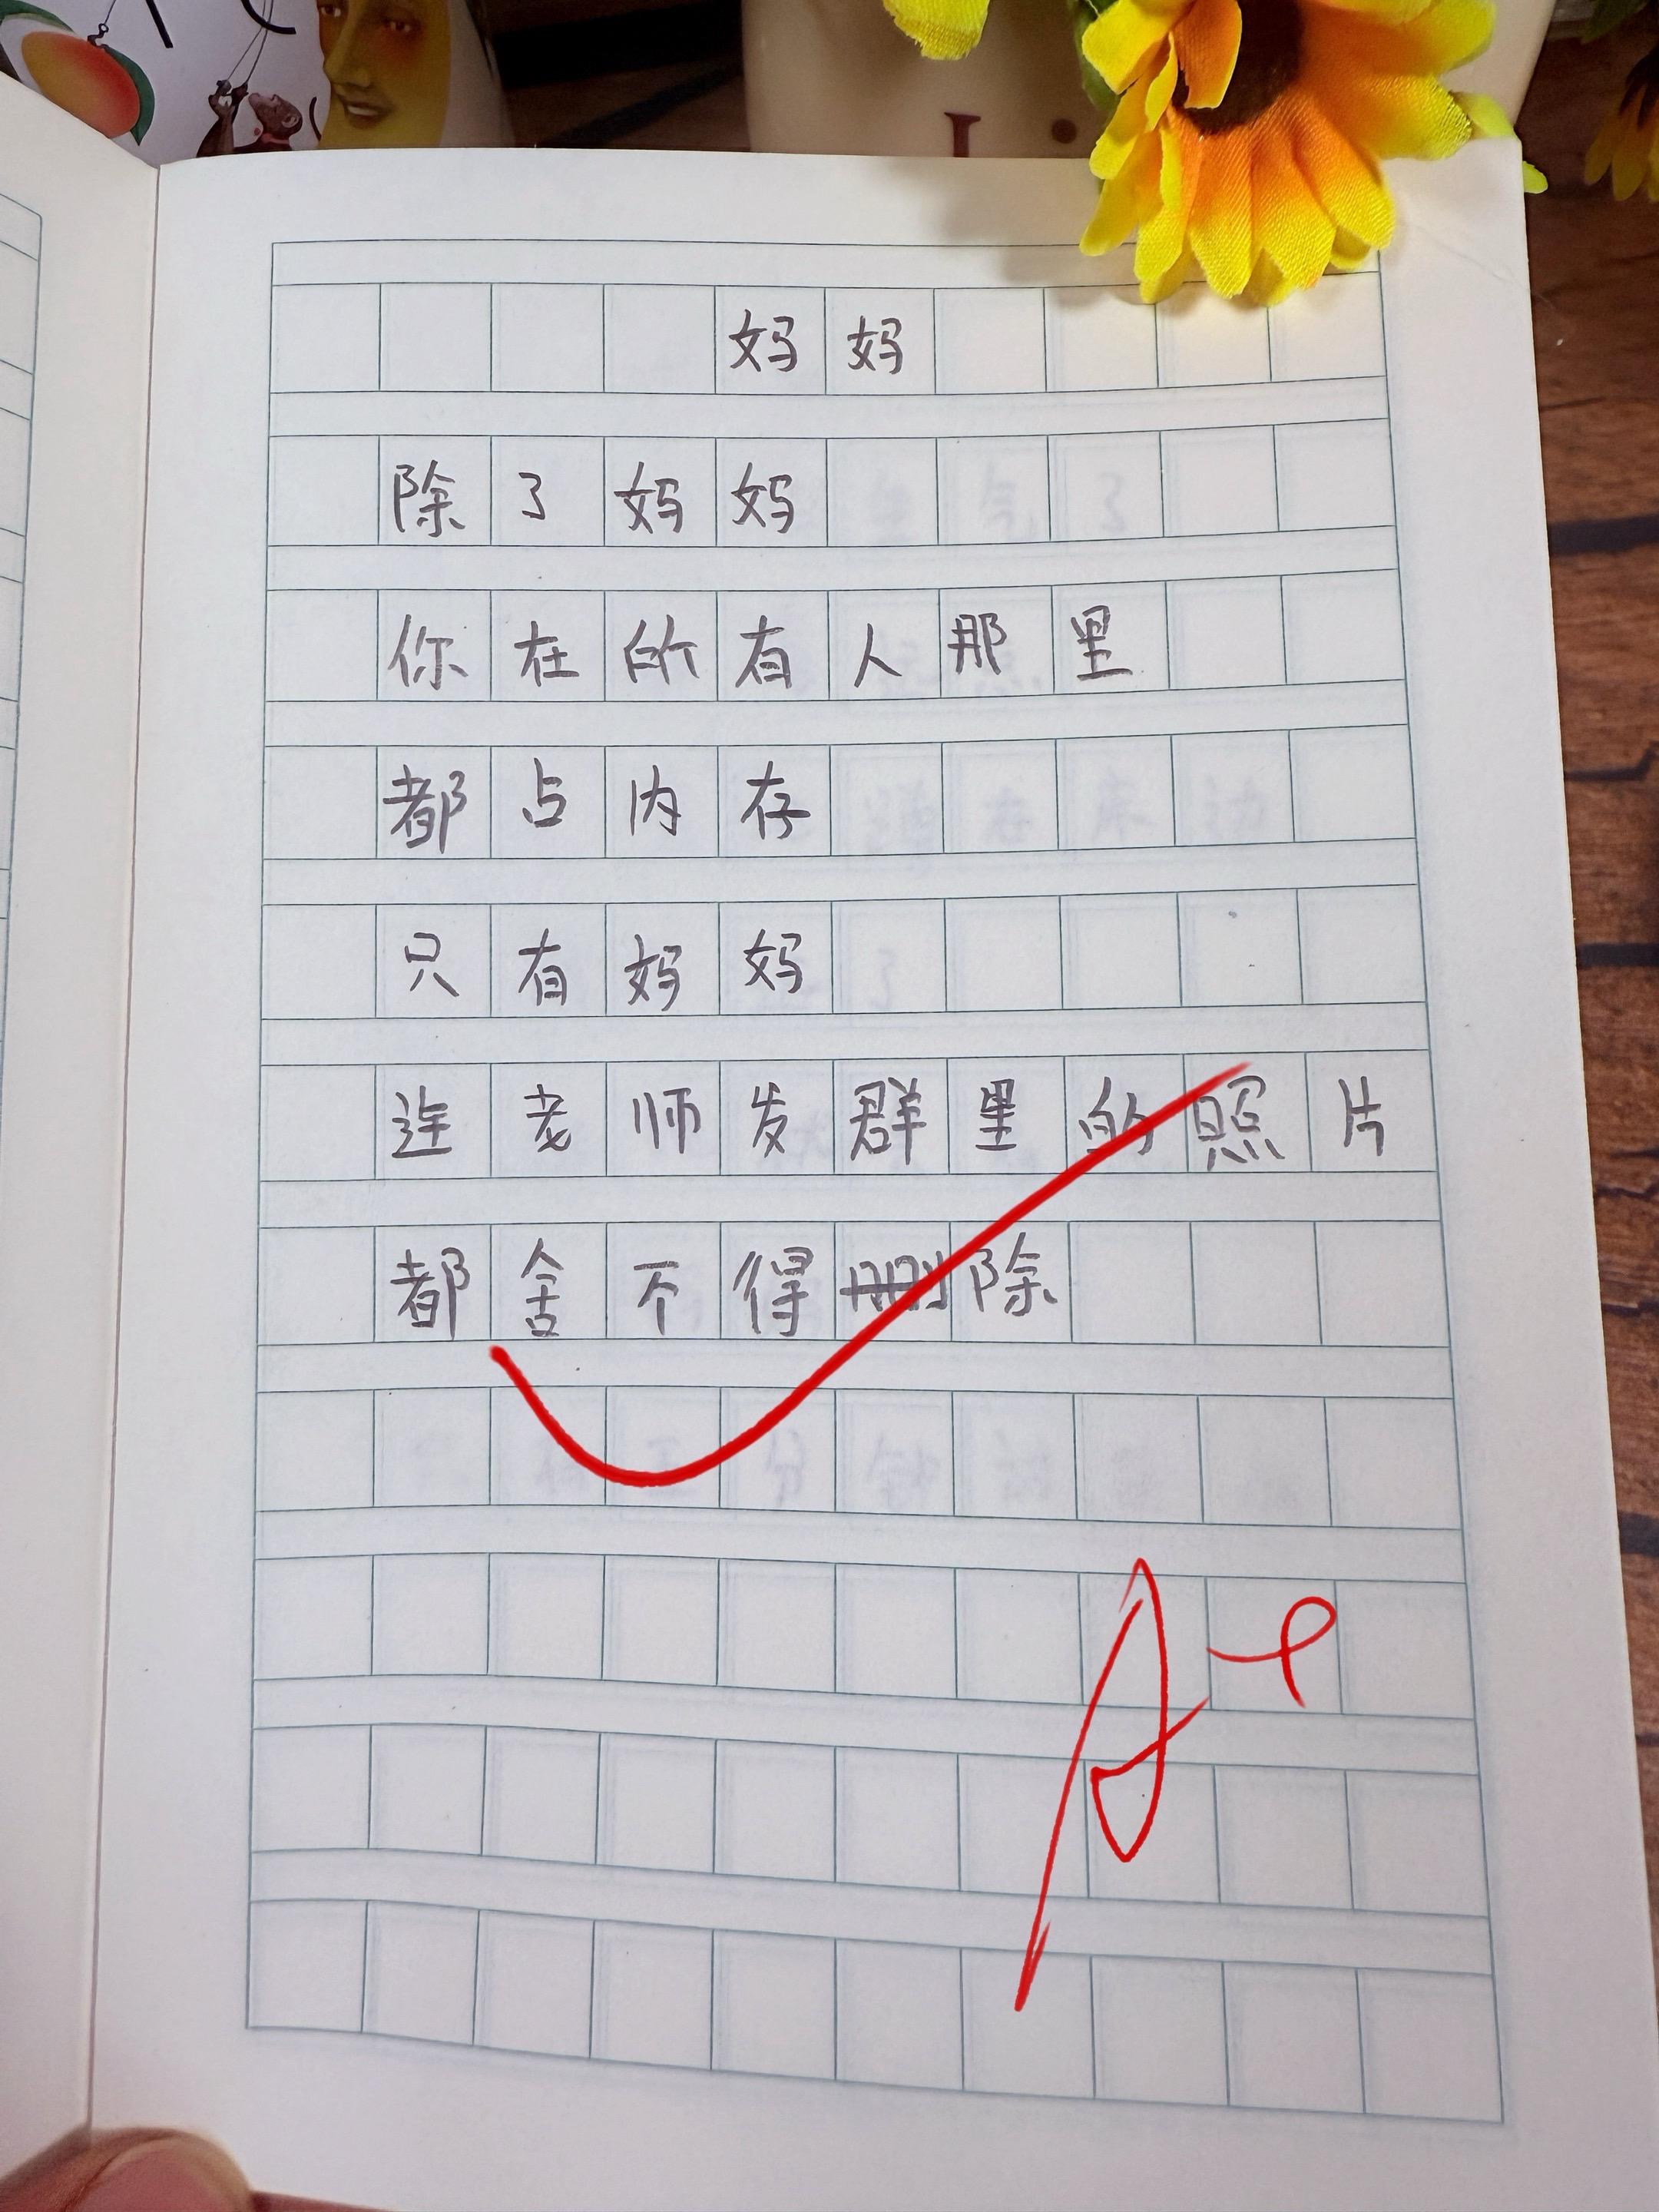 妈妈
除了妈妈
你在所有人那里
都占内存
只有妈妈
连老师发群里的照片
都舍不得删除
A+